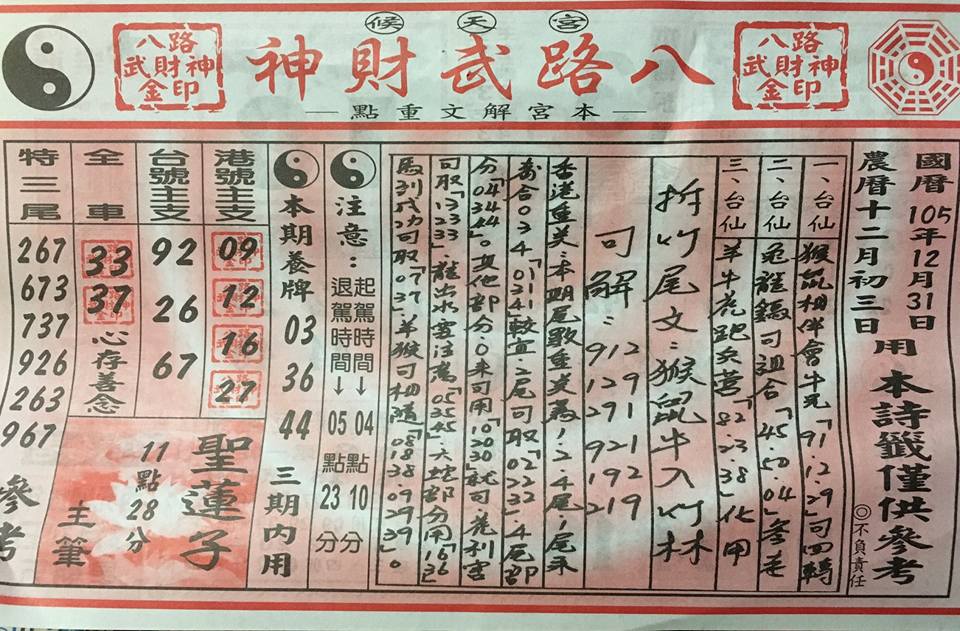 候天宮
八路武財神
本宮解文重點
八路
武財神
金印
八路
武財神
金印
國曆105年12月31日
農曆十二月初三日
用
本詩籤僅供參考
◎不負責任
一、台仙 猴鼠相伴會牛兄「91.12.29」可四轉
二、台仙 兔龍鷄可組合「45.50.04」參老
三、台仙 羊牛虎跑兵营「82.23.38」化甲
拆竹尾文：猴鼠牛入竹林
可解：912 129 291 921 192 219
香港重美：本期尾數重美為1.2.4尾1尾來
合034「0131」較宜.2尾可取「022232」.4尾部
分「0344」。其他部分.0來可用「102030」就可.
可取「132333」.龍出水雲注意「053545」.大蛇部分用「1636
馬到成功可取「0737」羊猴可相隨「081838.092939」。
注意：
起駕時間→04點10分
退駕時間→05點23分
本期養牌 03 36 44 三期內用
港號主支
09
12
16
27
台號主支
92
26
67
全車
33
37
心存善念
特三尾
267
673
737
926
263
967
參考
聖蓮子
11點28分
主筆